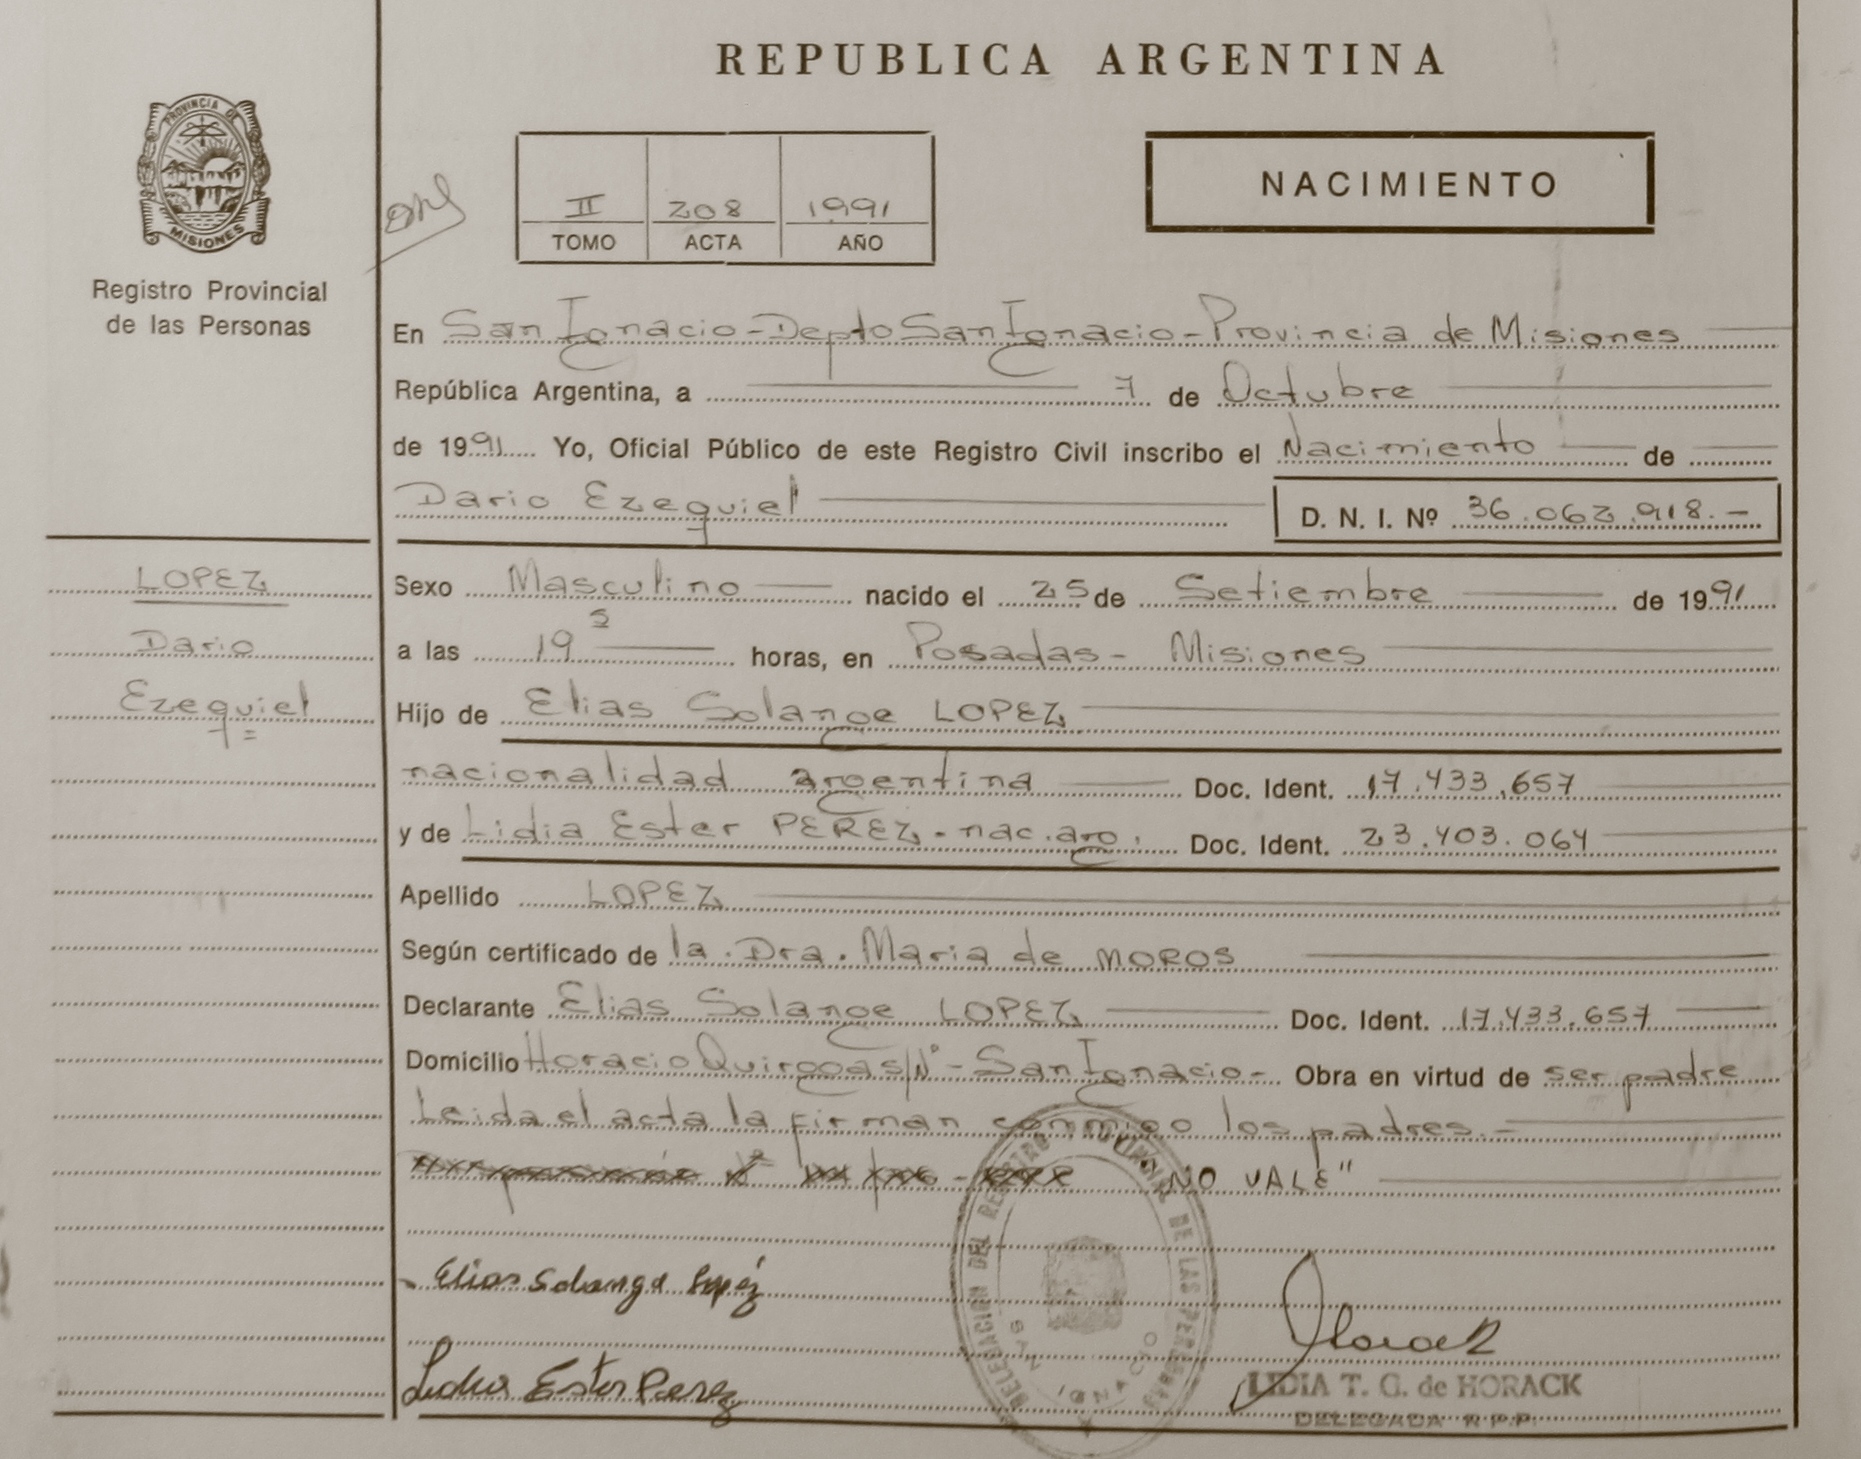 REPUBLICA ARGENTINA
PROVINCIA DE
MISIONES
Registro Provincial
de las Personas
II 208 1991
TOMO ACTA AÑO
NACIMIENTO
En San Ignacio-Depto San Ignacio-Provincia de Misiones
República Argentina, a 7 de Octubre
de 1991 Yo, Oficial Público de este Registro Civil inscribo el Nacimiento de
Dario Ezequiel D. N. I. Nº 36.062.918.-
LOPEZ
Dario
Ezequiel
Sexo Masculino nacido el 25 de Setiembre de 1991
a las 19 5 horas, en Posadas- Misiones
Hijo de Elias Solange LOPEZ
nacionalidad argentina Doc. Ident. 17.433.657
y de Lidia Ester PEREZ.nac.arg. Doc. Ident. 23.403.064
Apellido LOPEZ
Según certificado de la.Dra.Maria de MOROS
Declarante Elias Solange LOPEZ Doc. Ident. 17.433.657
Domicilio Horacio Quiroga s/Nº-San Ignacio- Obra en virtud de ser padre
Leida el acta la firman conmigo los padres.-
"NO VALE"
Elias Solange Lopéz
Lidia Ester Perez
DELEGACION DEL REGISTRO PROVINCIAL DE LAS PERSONAS
SAN IGNACIO
Horack
LIDIA T. G. de HORACK
DELEGADA R.P.P.